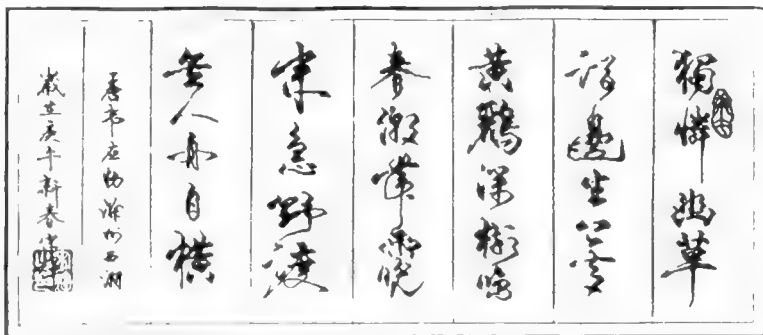 獨憐幽草
澗邊生上有
黃鸝深樹鳴
春潮帶雨晚
來急野渡
無人舟自橫
唐韦应物滁州西澗
歲在庚午新春